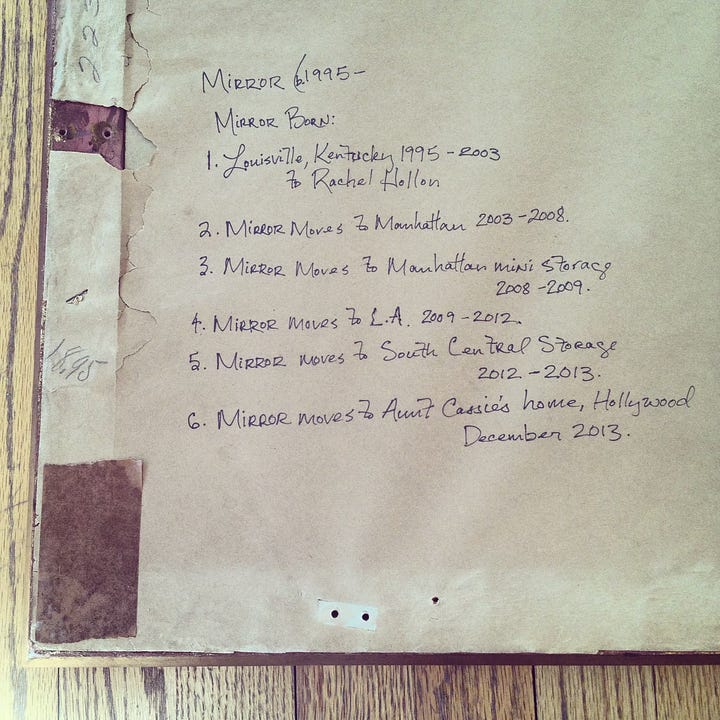 223
MIRROR (b.1995–
MIRROR BORN:
1. Louisville, Kentucky 1995 – 2003
to Rachel Hollon
2. MIRROR Moves to Manhattan 2003 – 2008.
3. MIRROR Moves to Manhattan mini storage
2008 – 2009.
4. MIRROR moves to L.A. 2009 – 2012.
5. MIRROR moves to South Central Storage
2012 – 2013.
6. MIRROR moves to Aunt Cassie's home, Hollywood
December 2013.
18.95